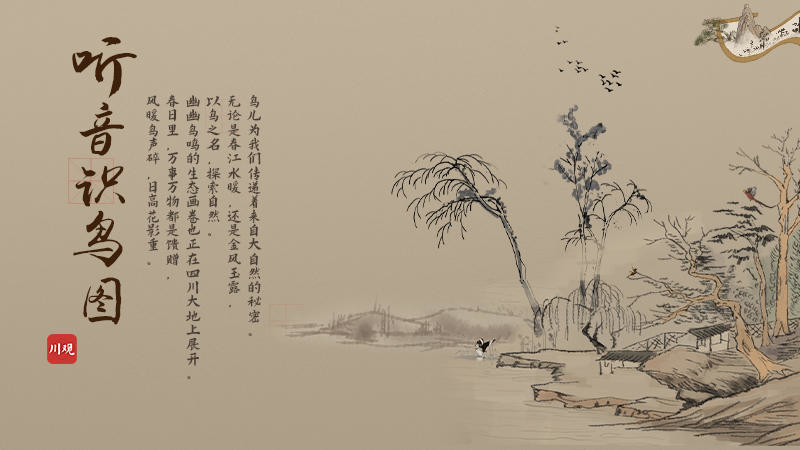 听音识鸟图
鸟儿为我们传递着来自大自然的秘密。
无论是春江水暖,还是金风玉露,
以鸟之名,探索自然。
幽幽鸟鸣的生态画卷也正在四川大地上展开。
春日里,万事万物都是馈赠,
风暖鸟声碎,日高花影重。
川观